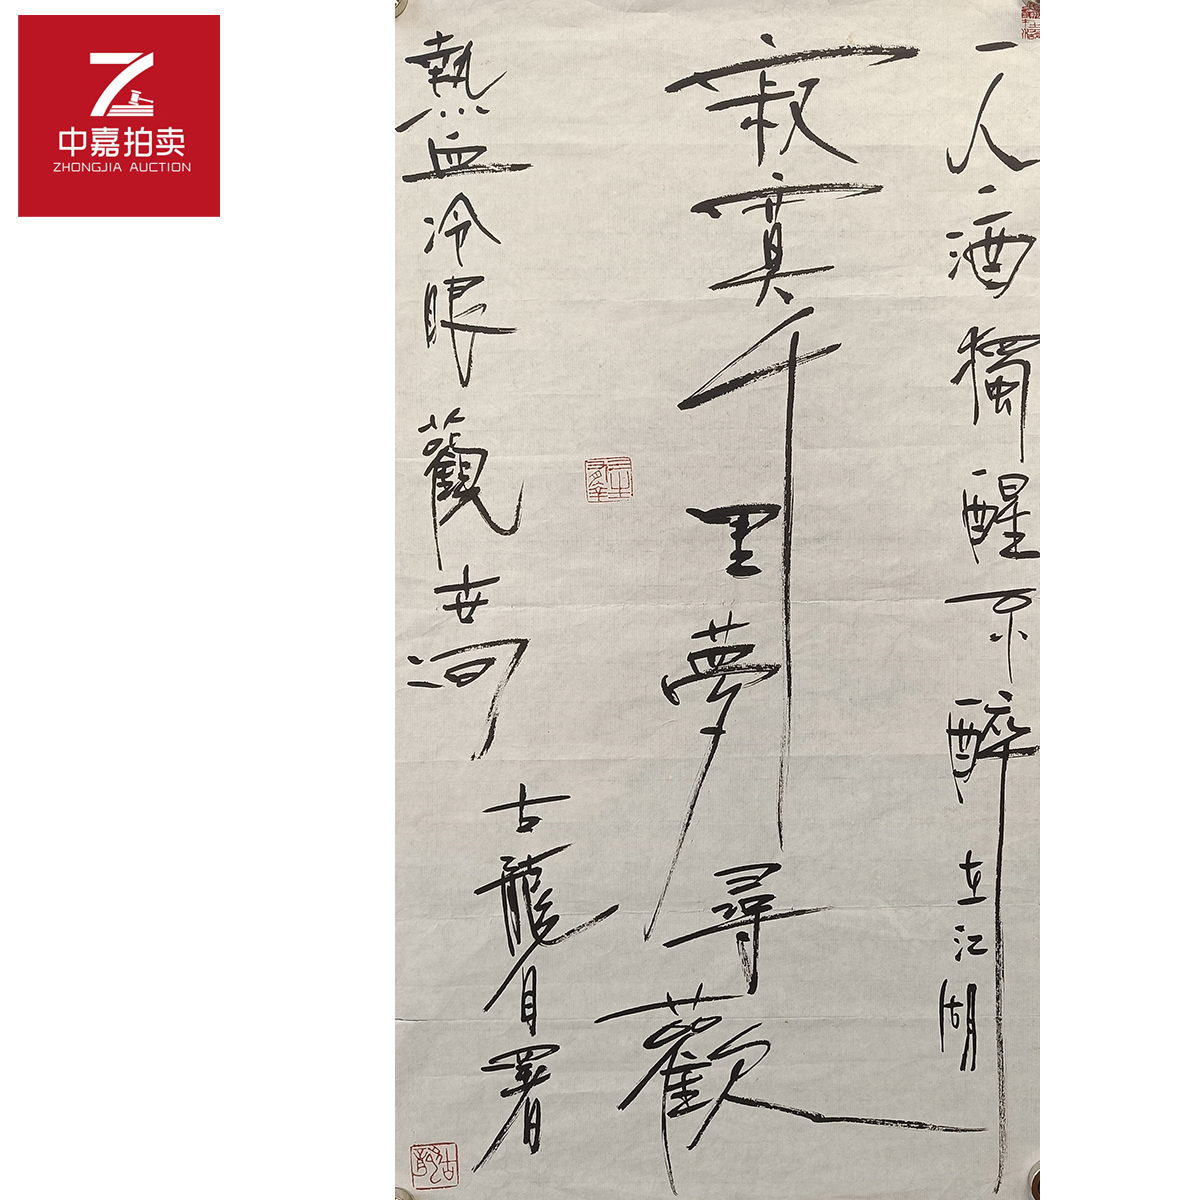 中嘉拍卖
ZHONGJIA AUCTION
一人酒獨醒不醉在江湖
寂寞千里夢尋歡
熱血冷眼觀世
古龍自署
三生有幸
古龍